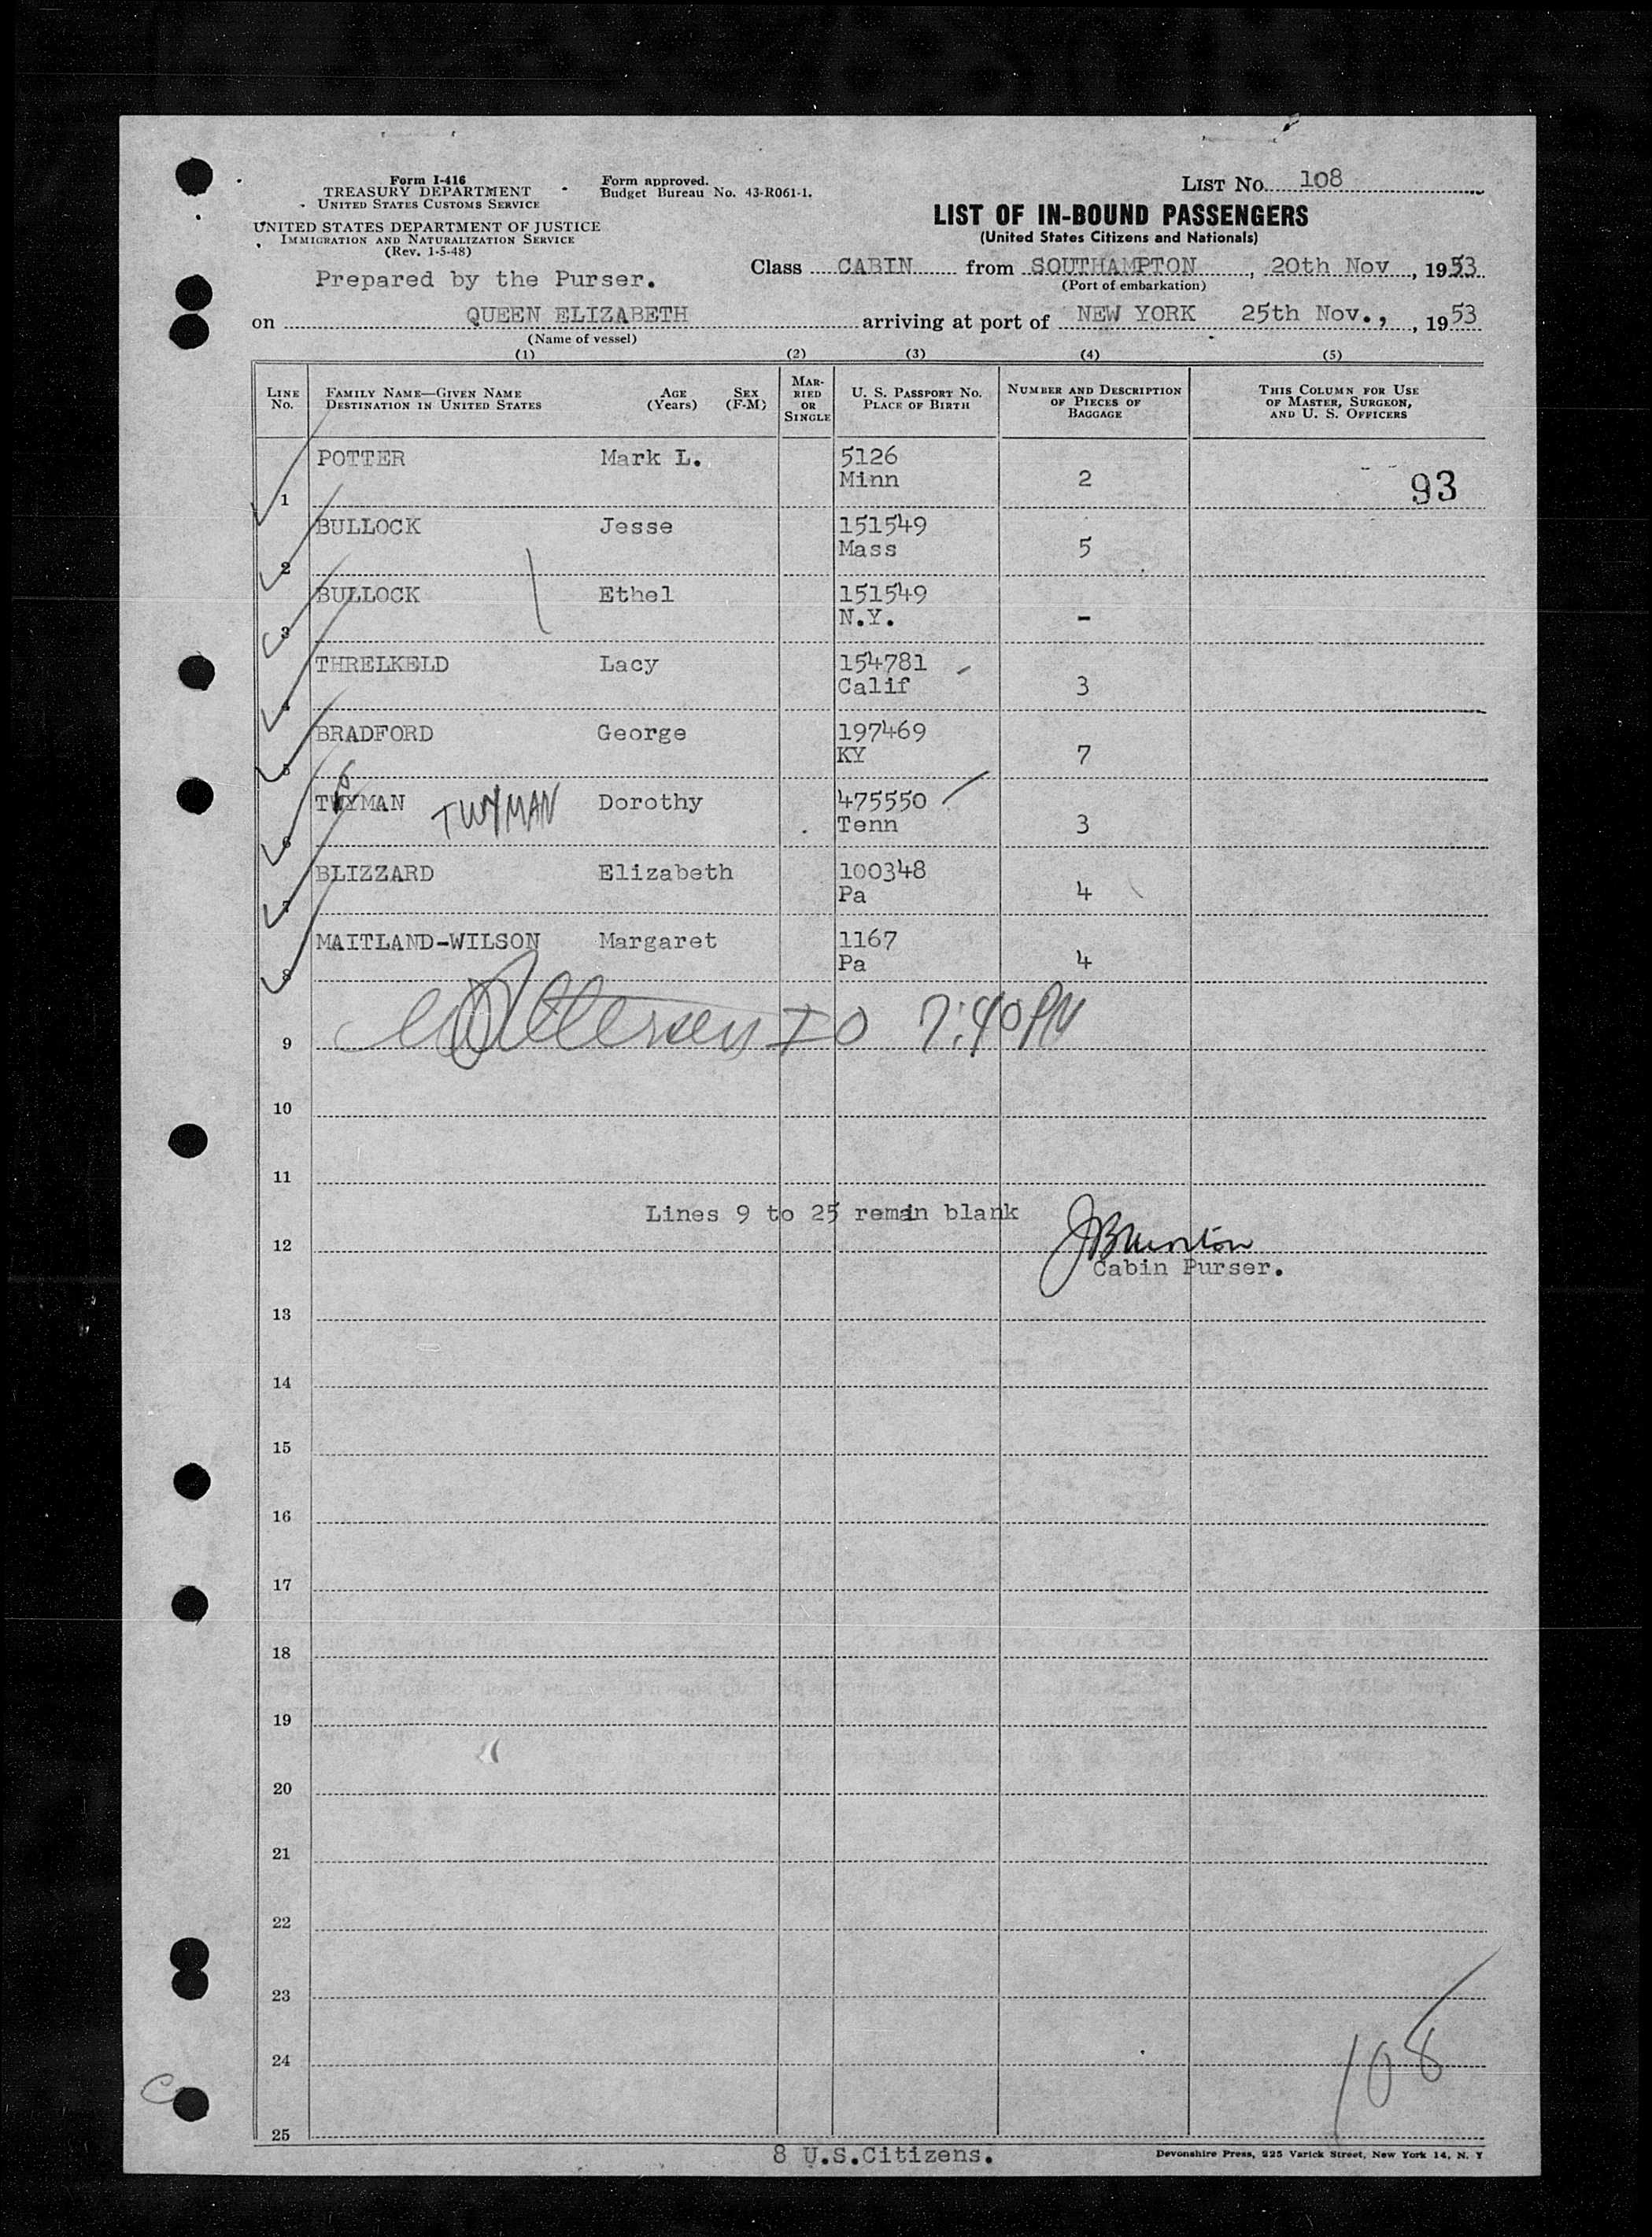 Form I-416
TREASURY DEPARTMENT
UNITED STATES CUSTOMS SERVICE
UNITED STATES DEPARTMENT OF JUSTICE
IMMIGRATION AND NATURALIZATION SERVICE
(Rev. 1-5-48)
Form approved.
Budget Bureau No. 43-R061-1.
LIST No. 108
LIST OF IN-BOUND PASSENGERS
(United States Citizens and Nationals)
Prepared by the Purser.
Class CABIN from SOUTHAMPTON, 20th Nov, 1953
(Port of embarkation)
on QUEEN ELIZABETH arriving at port of NEW YORK 25th Nov., , 1953
(Name of vessel)
(1) (2) (3) (4) (5)
LINE No. FAMILY NAME—GIVEN NAME DESTINATION IN UNITED STATES AGE (Years) SEX (F-M) MARRIED OR SINGLE U. S. PASSPORT NO. PLACE OF BIRTH NUMBER AND DESCRIPTION OF PIECES OF BAGGAGE THIS COLUMN FOR USE OF MASTER, SURGEON, AND U. S. OFFICERS
POTTER Mark L. 5126
1 Minn 2 93
BULLOCK Jesse 151549
2 Mass 5
BULLOCK Ethel 151549
3 N.Y. -
THRELKELD Lacy 154781
4 Calif 3
BRADFORD George 197469
5 KY 7
TWYMAN TWYMAN Dorothy 475550
6 Tenn 3
BLIZZARD Elizabeth 100348
7 Pa 4
MAITLAND-WILSON Margaret 1167
8 Pa 4
9 IO 7:40 PM
10
11
Lines 9 to 25 remain blank
12
Cabin Purser.
13
14
15
16
17
18
19
20
21
22
23
24
108
C
25
8 U.S.Citizens.
Devonshire Press, 225 Varick Street, New York 14, N. Y